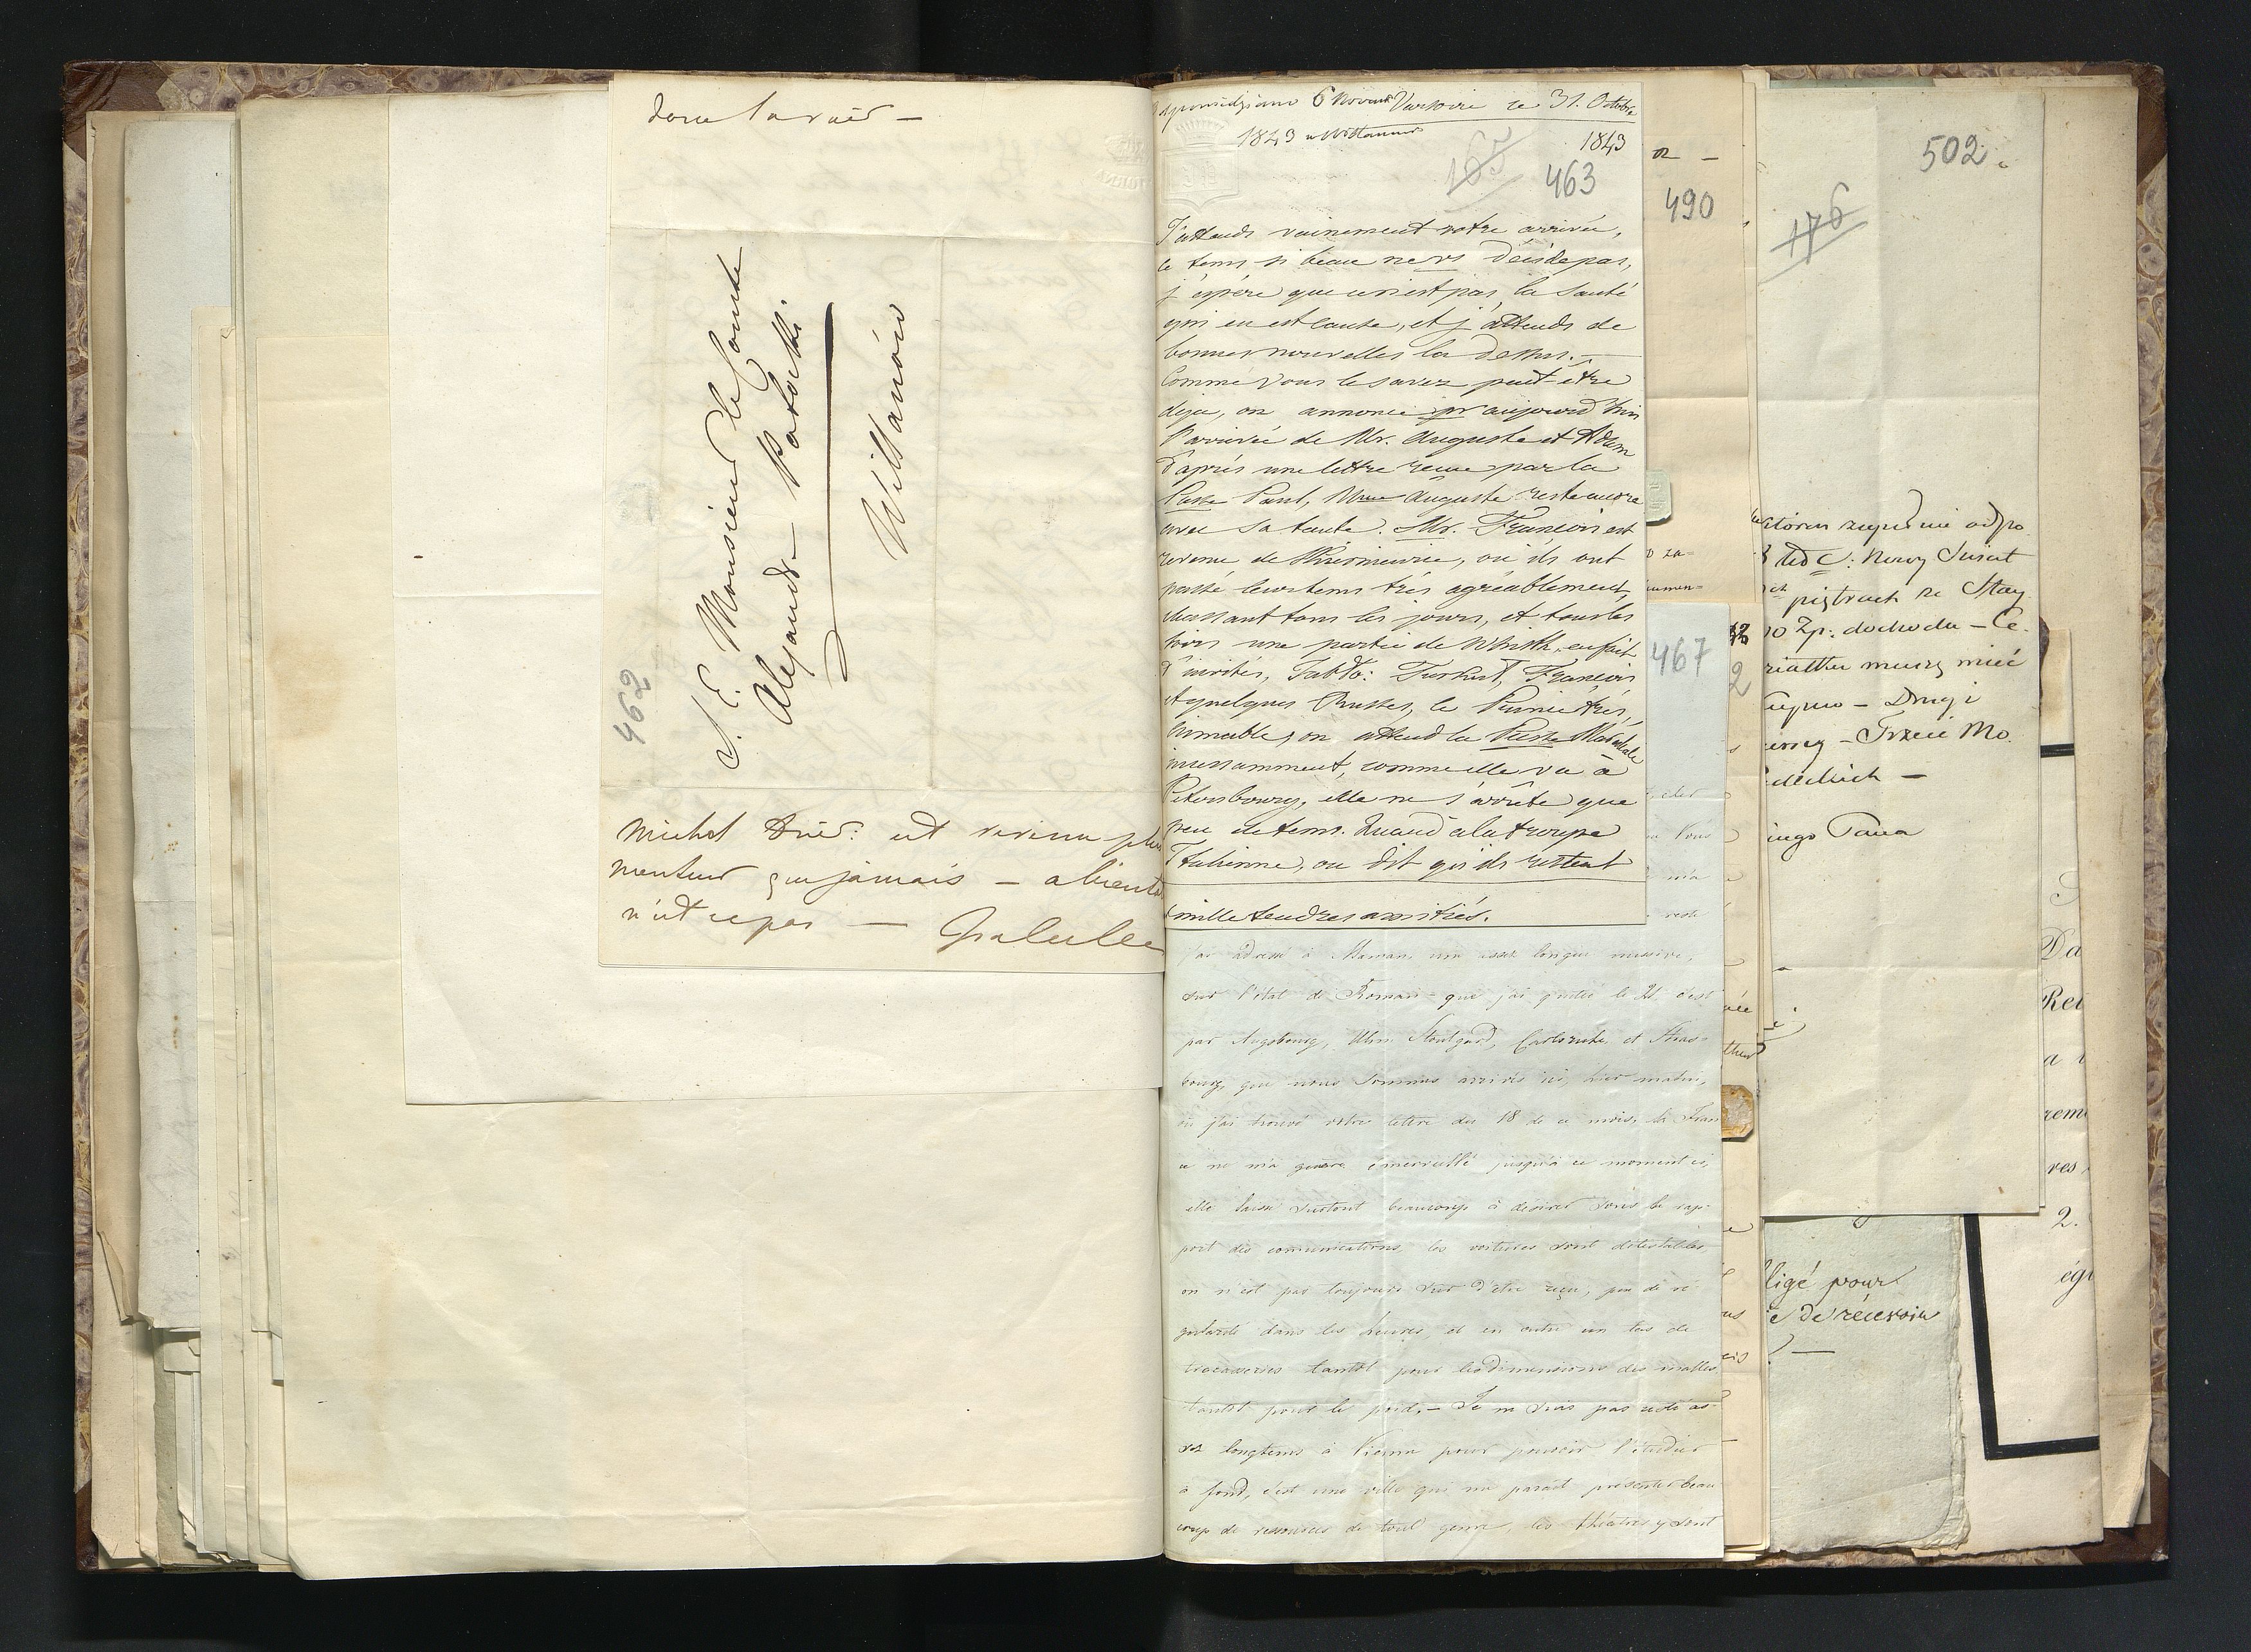 donc la voir –
S. E. Monsieur le Comte
Alexandre Potocki.
Willanów
462
Michel est revenu plus
menteur que jamais – a bientot
n'est ce pas –
6 Novem Varsovie ce 31. Octobre
1843 w Willanowie 1843
165
463
J'attends vainement votre arrivée,
le tems si beau ne vs décide pas,
j'espère que ce n'est pas la santé
qui en est cause, et j'attends de
bonnes nouvelles la dessus. –
Comme vous le savez peut-être
déja, on annonce pr aujourd'hui
l'arrivée de Mr. Auguste et Adam
d'après une lettre recue par la
Csse Paul, Mme Auguste reste encore
avec sa tante. Mr. François est
revenu de Skierniewice, où ils ont
passé leur tems très agréablement,
chassant tous les jours, et tous les
soirs une partie de Whisth, en fait
d'invités, François
et quelques Russes, le Prince très
aimable, on attend la
incessamment, comme elle va à
Petersbourg, elle ne s'arrête que
peu de tems. Quand à la troupe
Italienne, on dit qu'ils restent
mille tendres amitiés.
j'ai adressé à Maman une assez longue missive,
sur l'état de Roman que j'ai quitté le 21, c'est
par Augsbourg, Ulm Stoutgard, Carlsruhe et Stras-
bourg, que nous sommes arrivés ici, hier matin,
où j'ai trouvé votre lettre du 18 de ce mois, la Fran
ce ne m'a guère émerveillé jusqu'à ce moment ci,
elle laisse surtout beaucoup à désirer sous le rap-
port des comunications, les voitures sont détestables
on n'est pas toujours sur d'etre reçu, peu de ré
gularité dans les heures, et en outre un tas de
tracasseries tantot pour les dimensions des malles
tantot pour le poid. – Je ne suis pas resté as-
sez longtems à Vienne pour pouvoir l'étudier
à fond, c'est une ville qui me parait presenter beau
coup de ressources de tout genre, les théatres y sont
490
467
502.
176
Nowy Swiat
Zp: dochodu – Ce.
muszą mieć
Drugi
Trzeci Mo.
Pana
ligé pour
e de recevoir
Da
Rei
res
2.